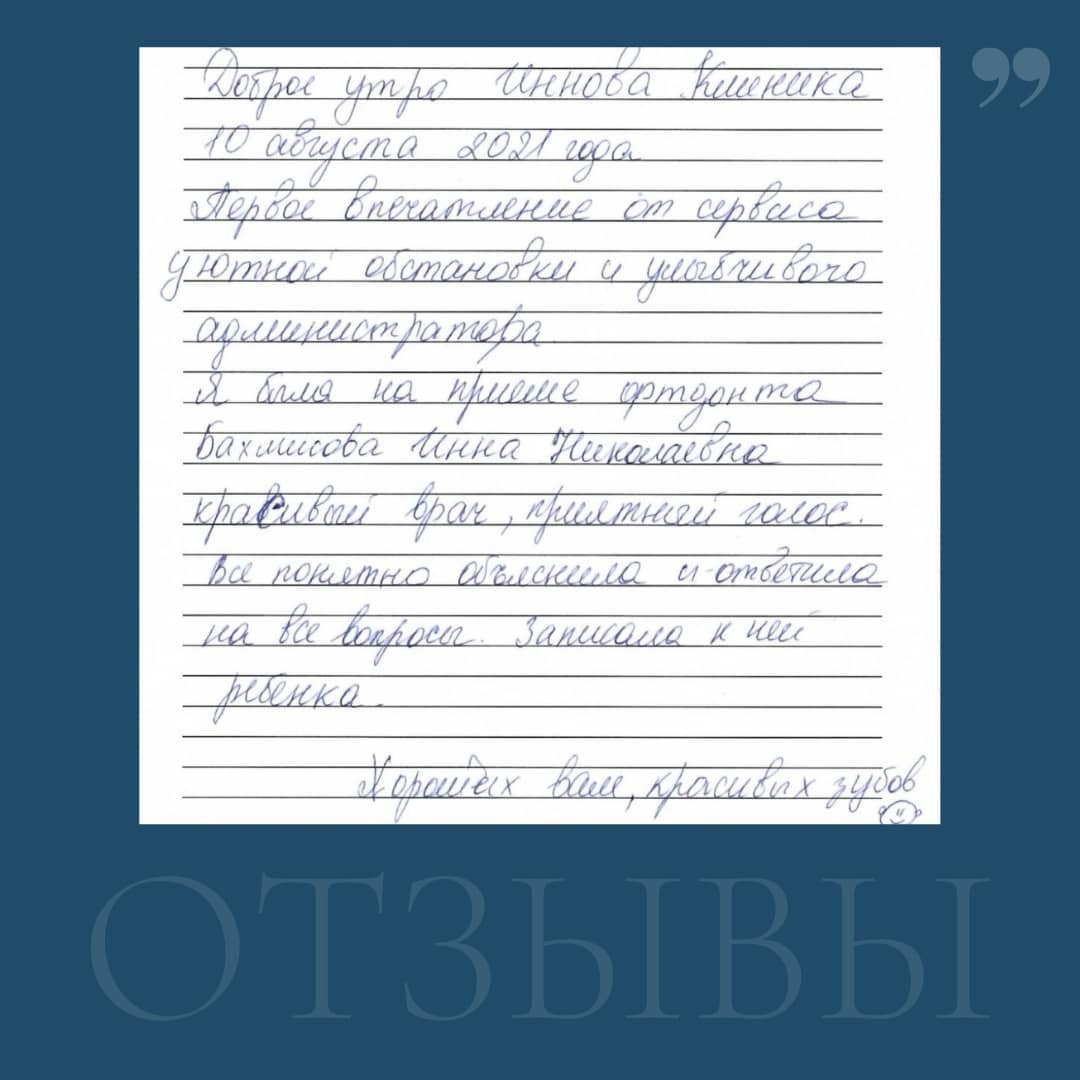 ”
Доброе утро Иннова Клиника
10 августа 2021 года
Первое впечатление от сервиса
уютной обстановки и улыбчивого
администратора
Я была на приеме ортдонта
Инна Николаевна
красивый врач, приятный голос.
Все понятно объяснила и ответила
на все вопросы. Записала к ней
ребенка.
Хороших вам, красивых зубов
ОТЗЫВЫ